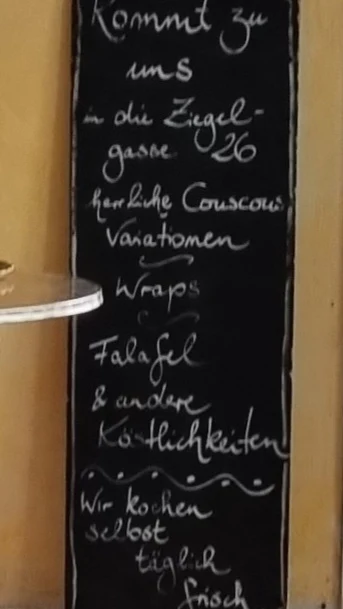 Kommt zu
uns
in die Ziegel-
gasse 26
herrliche Couscous
Variationen
Wraps
Falafel
& andere
Köstlichkeiten
Wir kochen
selbst
täglich
frisch